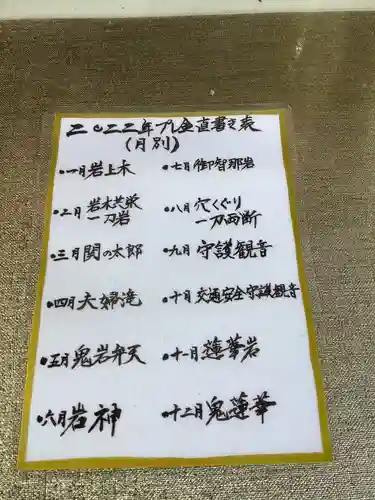 二〇二二年プレ企直書き表
(月別)
•一月岩上木
•二月岩木共栄
一刀岩
•三月関の太郎
•四月夫婦滝
•五月鬼岩弁天
•六月岩神
•七月御智那岩
•八月穴くぐり
一刀両断
•九月守護観音
•十月交通安全守護観音
•十一月蓮華岩
•十二月鬼蓮華